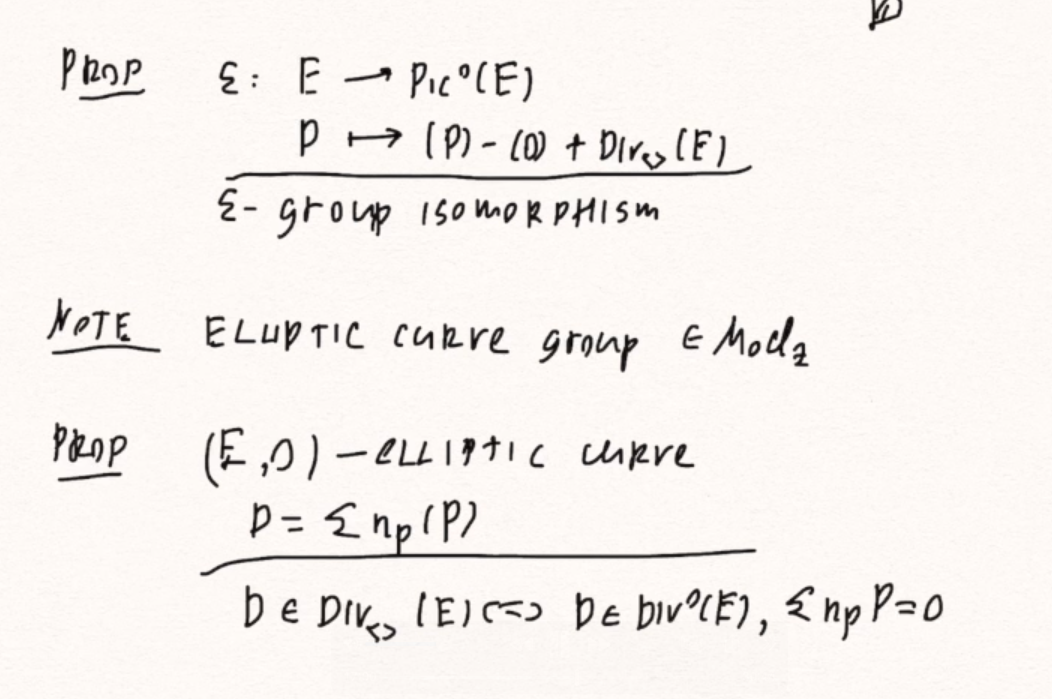 PROP ε: E → Pic⁰(E)
P ↦ (P) - (O) + Div<>(E)
ε- group ISOMORPHISM
NOTE ELLIPTIC curve group ∈ Mod_Z
PROP (E,O) - ELLIPTIC curve
D = Σ n_P (P)
D ∈ Div<>(E) <=> D ∈ Div⁰(E), Σ n_P P = O